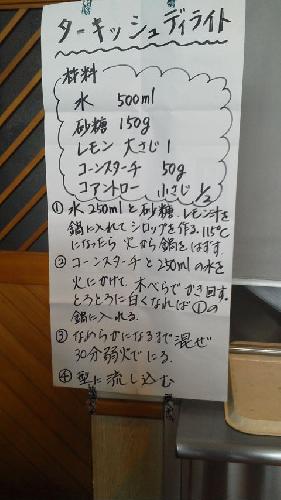 ターキッシュディライト
材料
水 500ml
砂糖 150g
レモン 大さじ1
コーンスターチ 50g
コアントロー 小さじ1/2
①水250mlと砂糖、レモン汁を
鍋に入れてシロップを作る。115℃
になったら火から鍋をはずす。
②コーンスターチと250mlの水を
火にかけて、木べらでかき回す。
とろとろに白くなれば①の
鍋に入れる。
③なめらかになるまで混ぜ
30分弱火でにる。
④型に流し込む